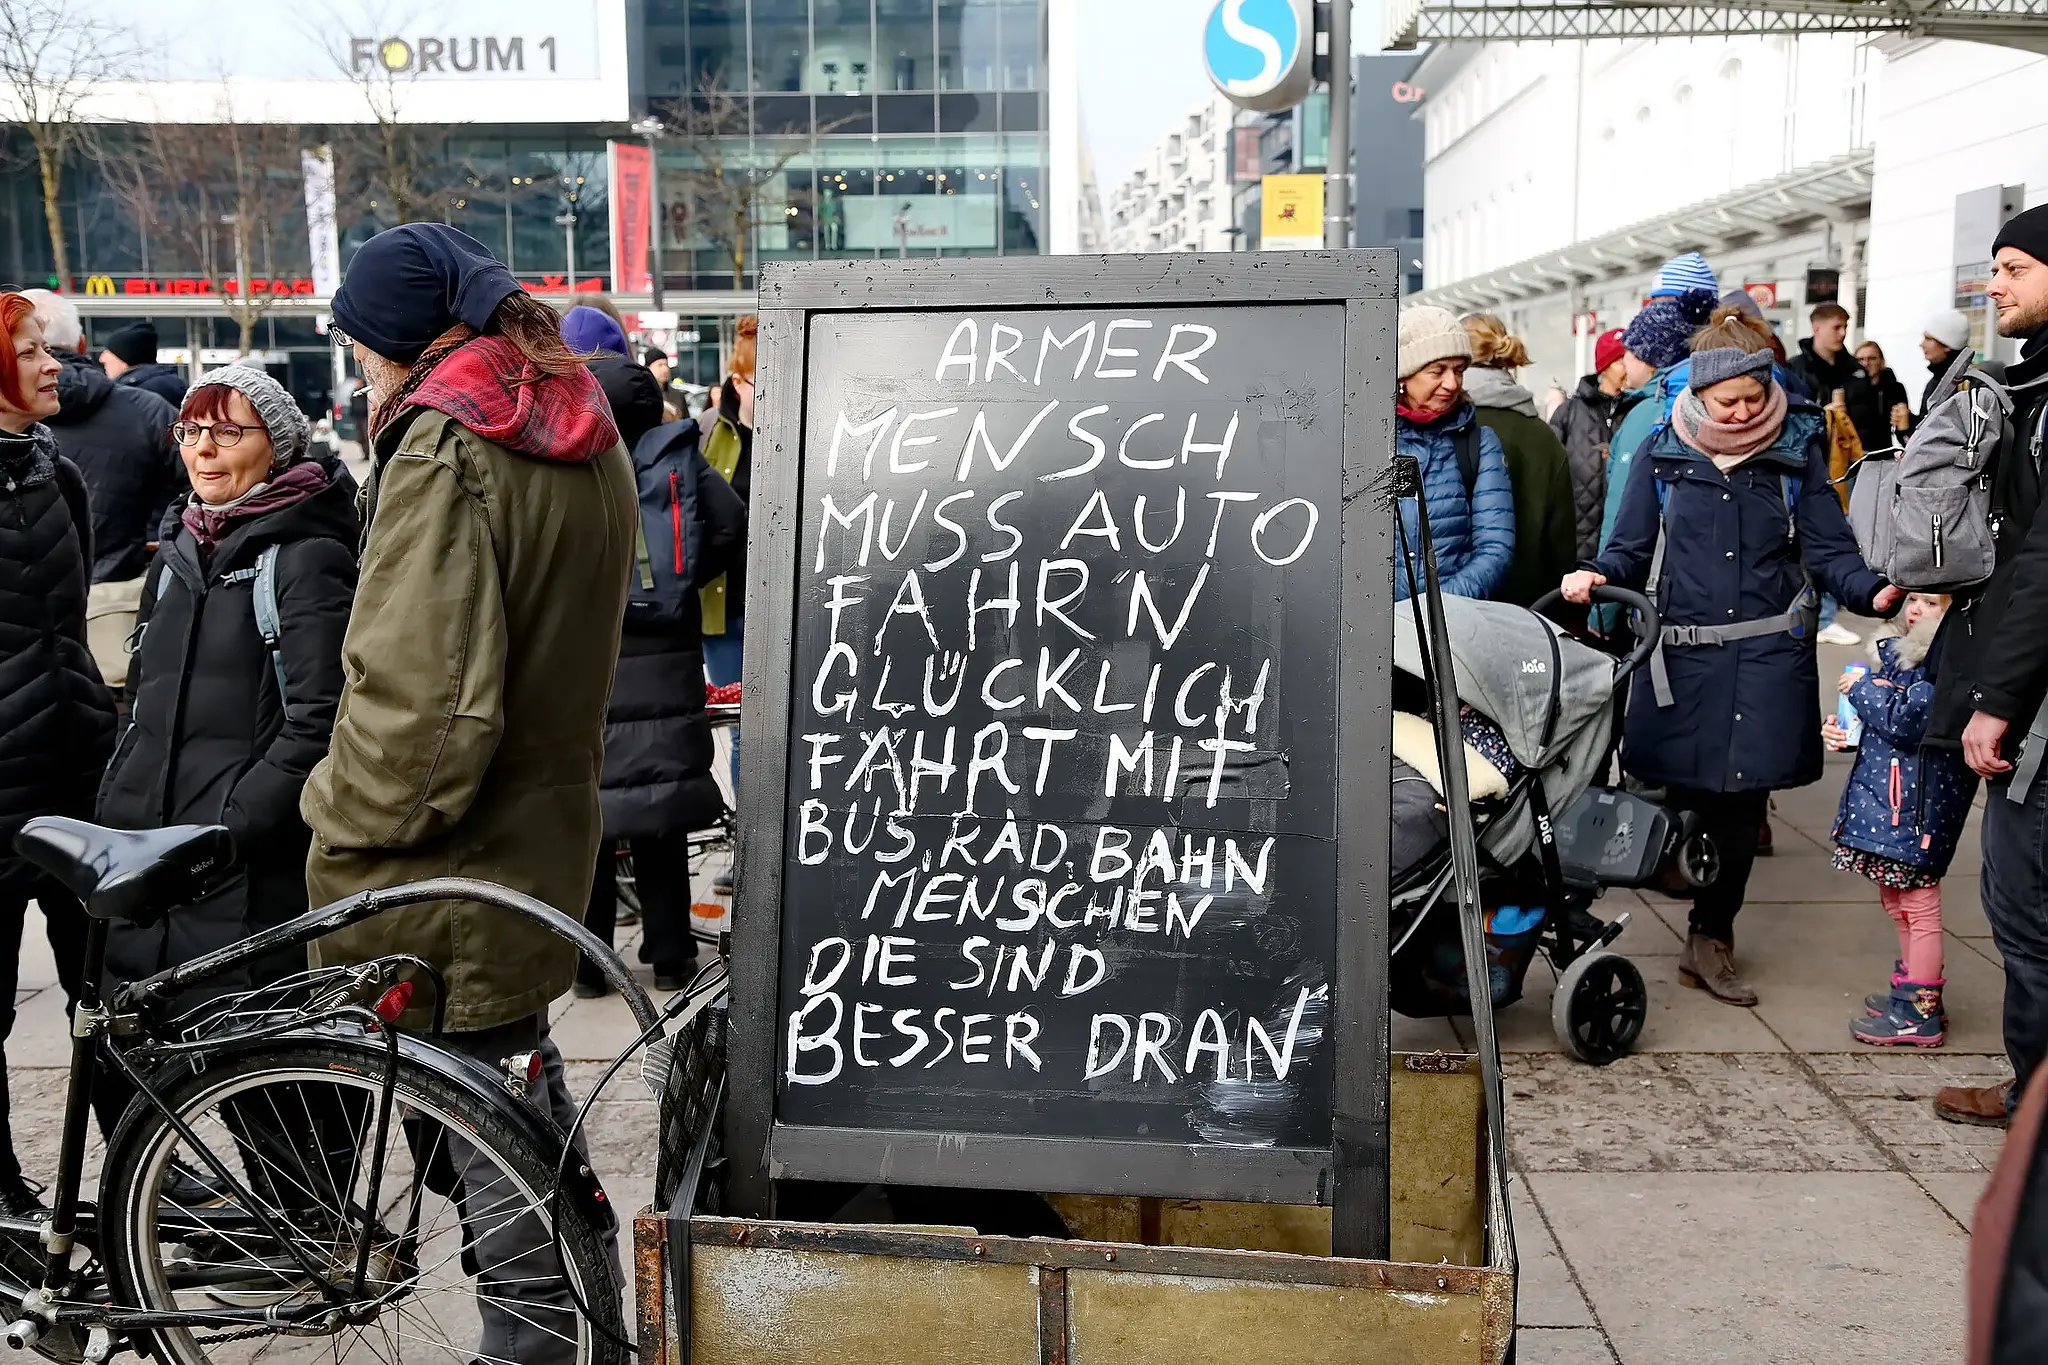 FORUM 1
S
EUROSPAR
ARMER
MENSCH
MUSS AUTO
FAHR'N
GLÜCKLICH
FÄHRT MIT
BUS, RAD, BAHN
MENSCHEN
DIE SIND
BESSER DRAN
Joie
Joie
SelleRoyal
Continental